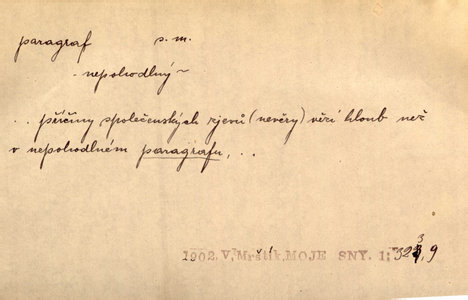 paragraf s. m.
- nepohodlný ~
. . příčiny společenských zjevů (nevěry) vězí hloub než
v nepohodlném paragrafu, . .
1902, V. Mrštík, MOJE SNY. 1; 323, 9